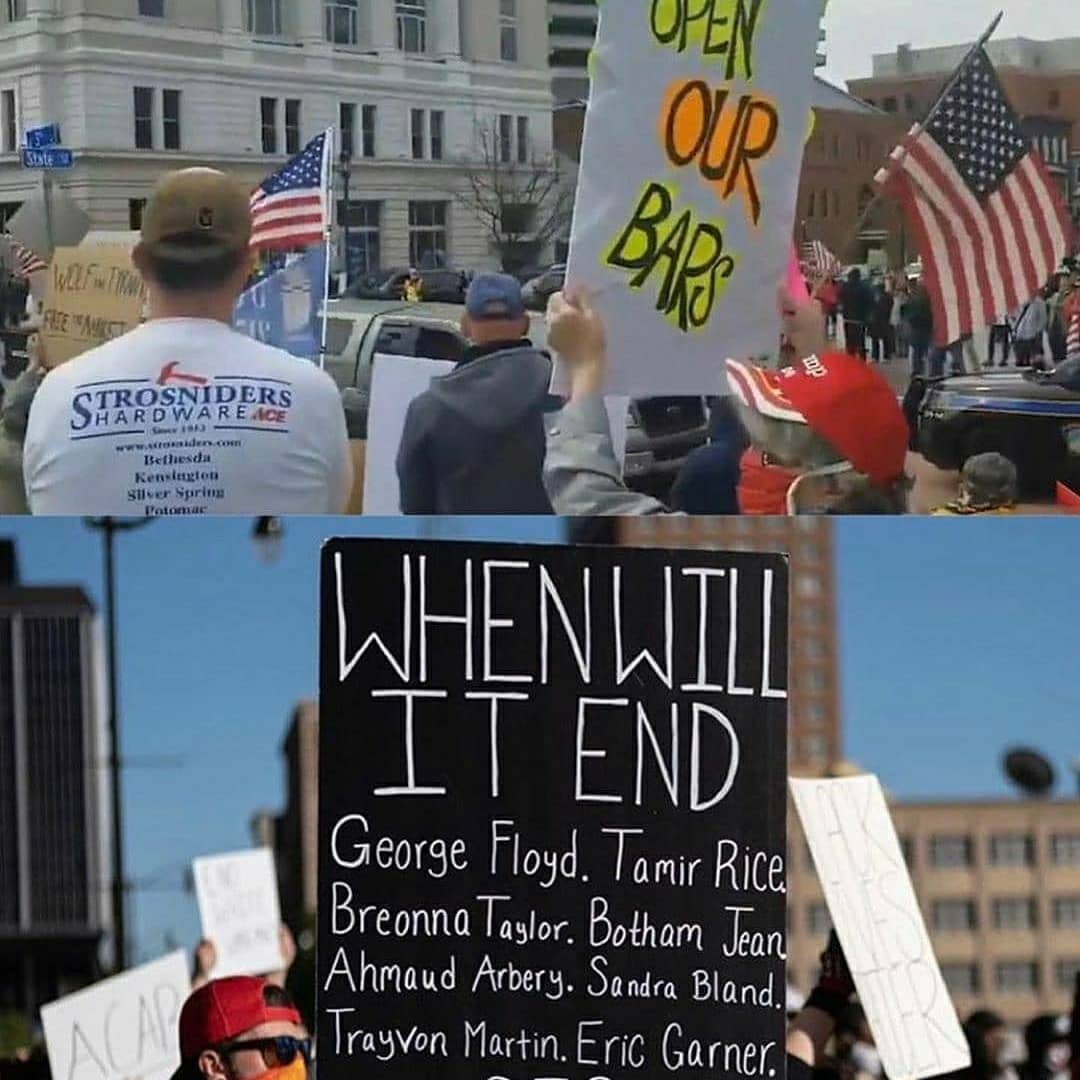 OPEN
OUR
BARS
State
WOLF
STROSNIDERS
HARDWARE ACE
Since 1953
www.strosniders.com
Bethesda
Kensington
Silver Spring
Potomac
WHEN WILL
IT END
George Floyd. Tamir Rice.
Breonna Taylor. Botham Jean
Ahmaud Arbery. Sandra Bland.
Trayvon Martin. Eric Garner.
ACAB